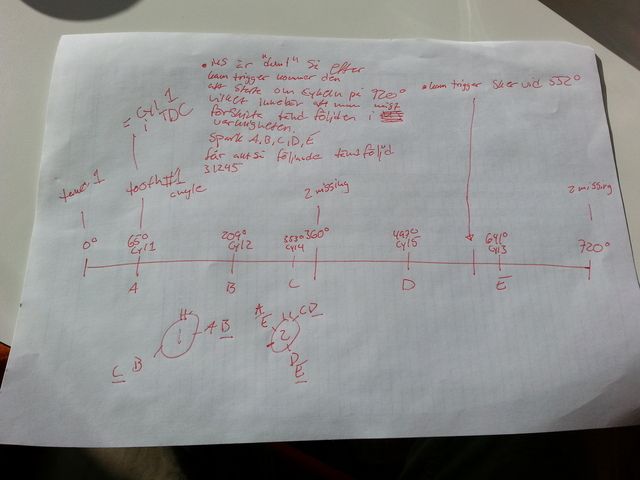 • MS är "dumt" så efter
kam trigger kommer den
att starta om cykeln på 720°
vilket innebär att man måste
förskjuta tänd följden i
verkligheten.
Spark A, B, C, D, E
får alltså följande tändföljd
31245
• kam trigger sker vid 552°
= Cyl. 1
i TDC
tand 1
tooth #1
angle
2 missing
2 missing
0°
65°
Cyl 1
209°
Cyl 2
353°
Cyl 4
360°
497°
Cyl 5
641°
Cyl 3
720°
A
B
C
D
E
1
A B
B
C
2
A
E
C D
D
E